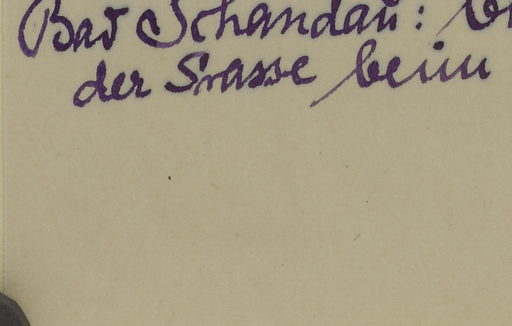 Bad Schandau:
der Srasse beim